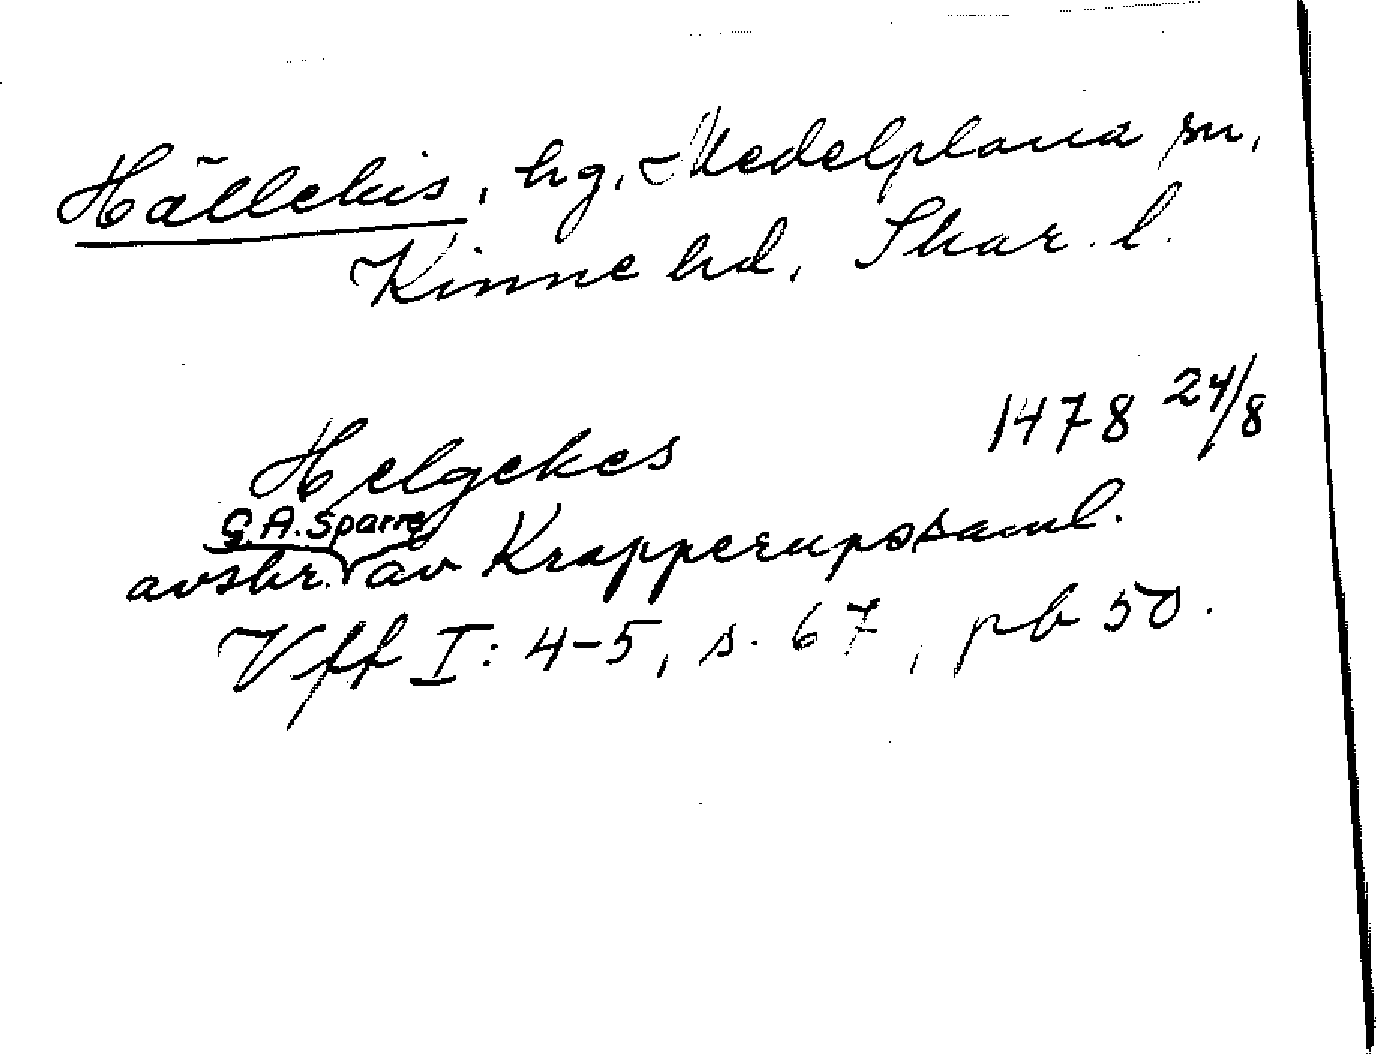 Hällekis, hg, Medelplana sn,
Kinne hd, Skar. l.
Helgekes 1478 24/8
G.A. Sparre
avskr. av Krapperupssaml.
Vff I: 4-5, s. 67, pb 50.